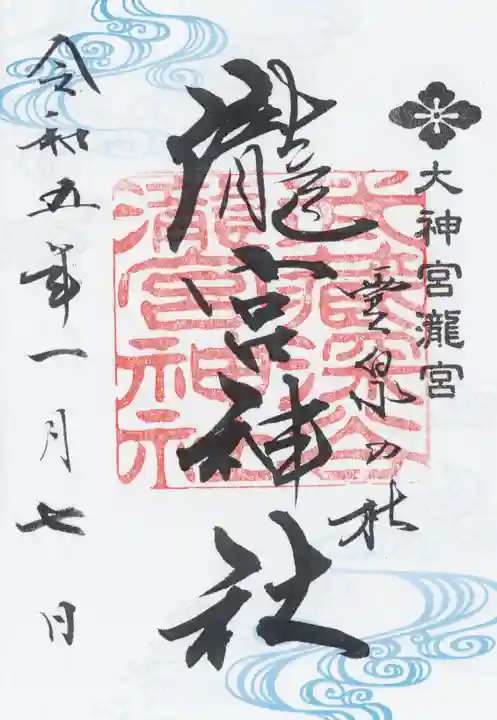 大神宮瀧宮
霊泉の杜
瀧宮神社
武蔵深谷
瀧宮神社
令和五年一月七日